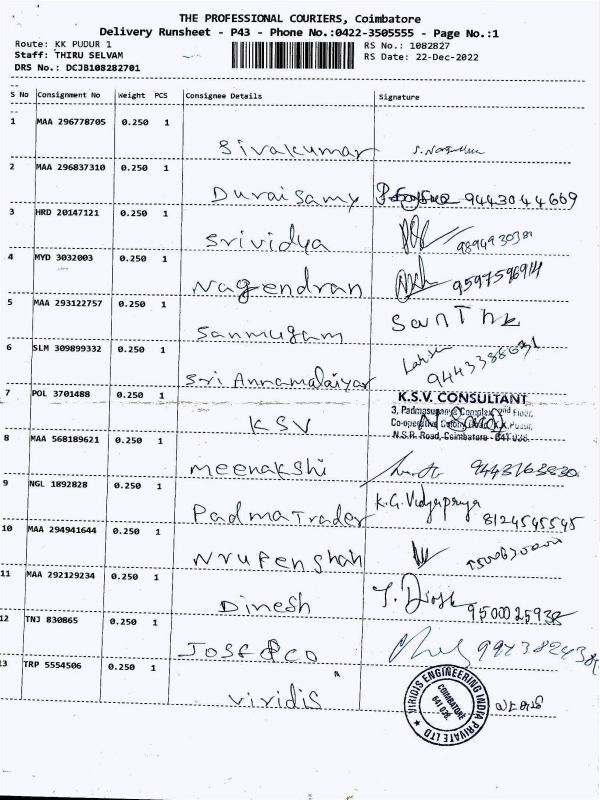 THE PROFESSIONAL COURIERS, Coimbatore
Delivery Runsheet - P43 - Phone No.:0422-3505555 - Page No.:1
Route: KK PUDUR 1 RS No.: 1082827
Staff: THIRU SELVAM RS Date: 22-Dec-2022
DRS No.: DCJB108282701
S No Consignment No Weight PCS Consignee Details Signature
1 MAA 296778705 0.250 1
Sivakumar
2 MAA 296837310 0.250 1
Duraisamy 9443044669
3 HRD 20147121 0.250 1
Srividya
4 MYD 3032003 0.250 1
Nagendran
5 MAA 293122757 0.250 1
Sanmugam
6 SLM 309899332 0.250 1
Sri Annamalaiyar
7 POL 3701488 0.250 1
K.S.V. CONSULTANT
3, Padmasugan's Complex, 2nd Floor,
Co-operative Colony Road, K.K.Pudur,
N.S.R. Road, Coimbatore - 641 038.
KSV
8 MAA 568189621 0.250 1
Meenakshi 9443163830
9 NGL 1892828 0.250 1
Padma Trader K.G. Vidyapraya 8124545545
10 MAA 294941644 0.250 1
Nrupen Shah
11 MAA 292129234 0.250 1
Dinesh 9500025938
12 TNJ 830865 0.250 1
Jose & co
13 TRP 5554506 0.250 1
Viridis
VIRIDIS ENGINEERING INDIA PRIVATE LTD
COIMBATORE
641 038